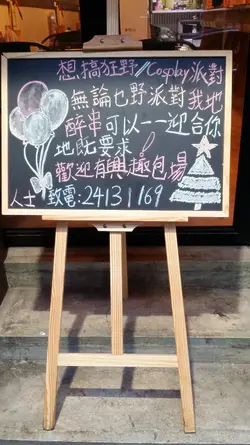 想搞狂野//Cosplay派對
無論乜野派對我地
醉串可以一一迎合你
地既要求!
歡迎有興趣包場
人士致電:24131169